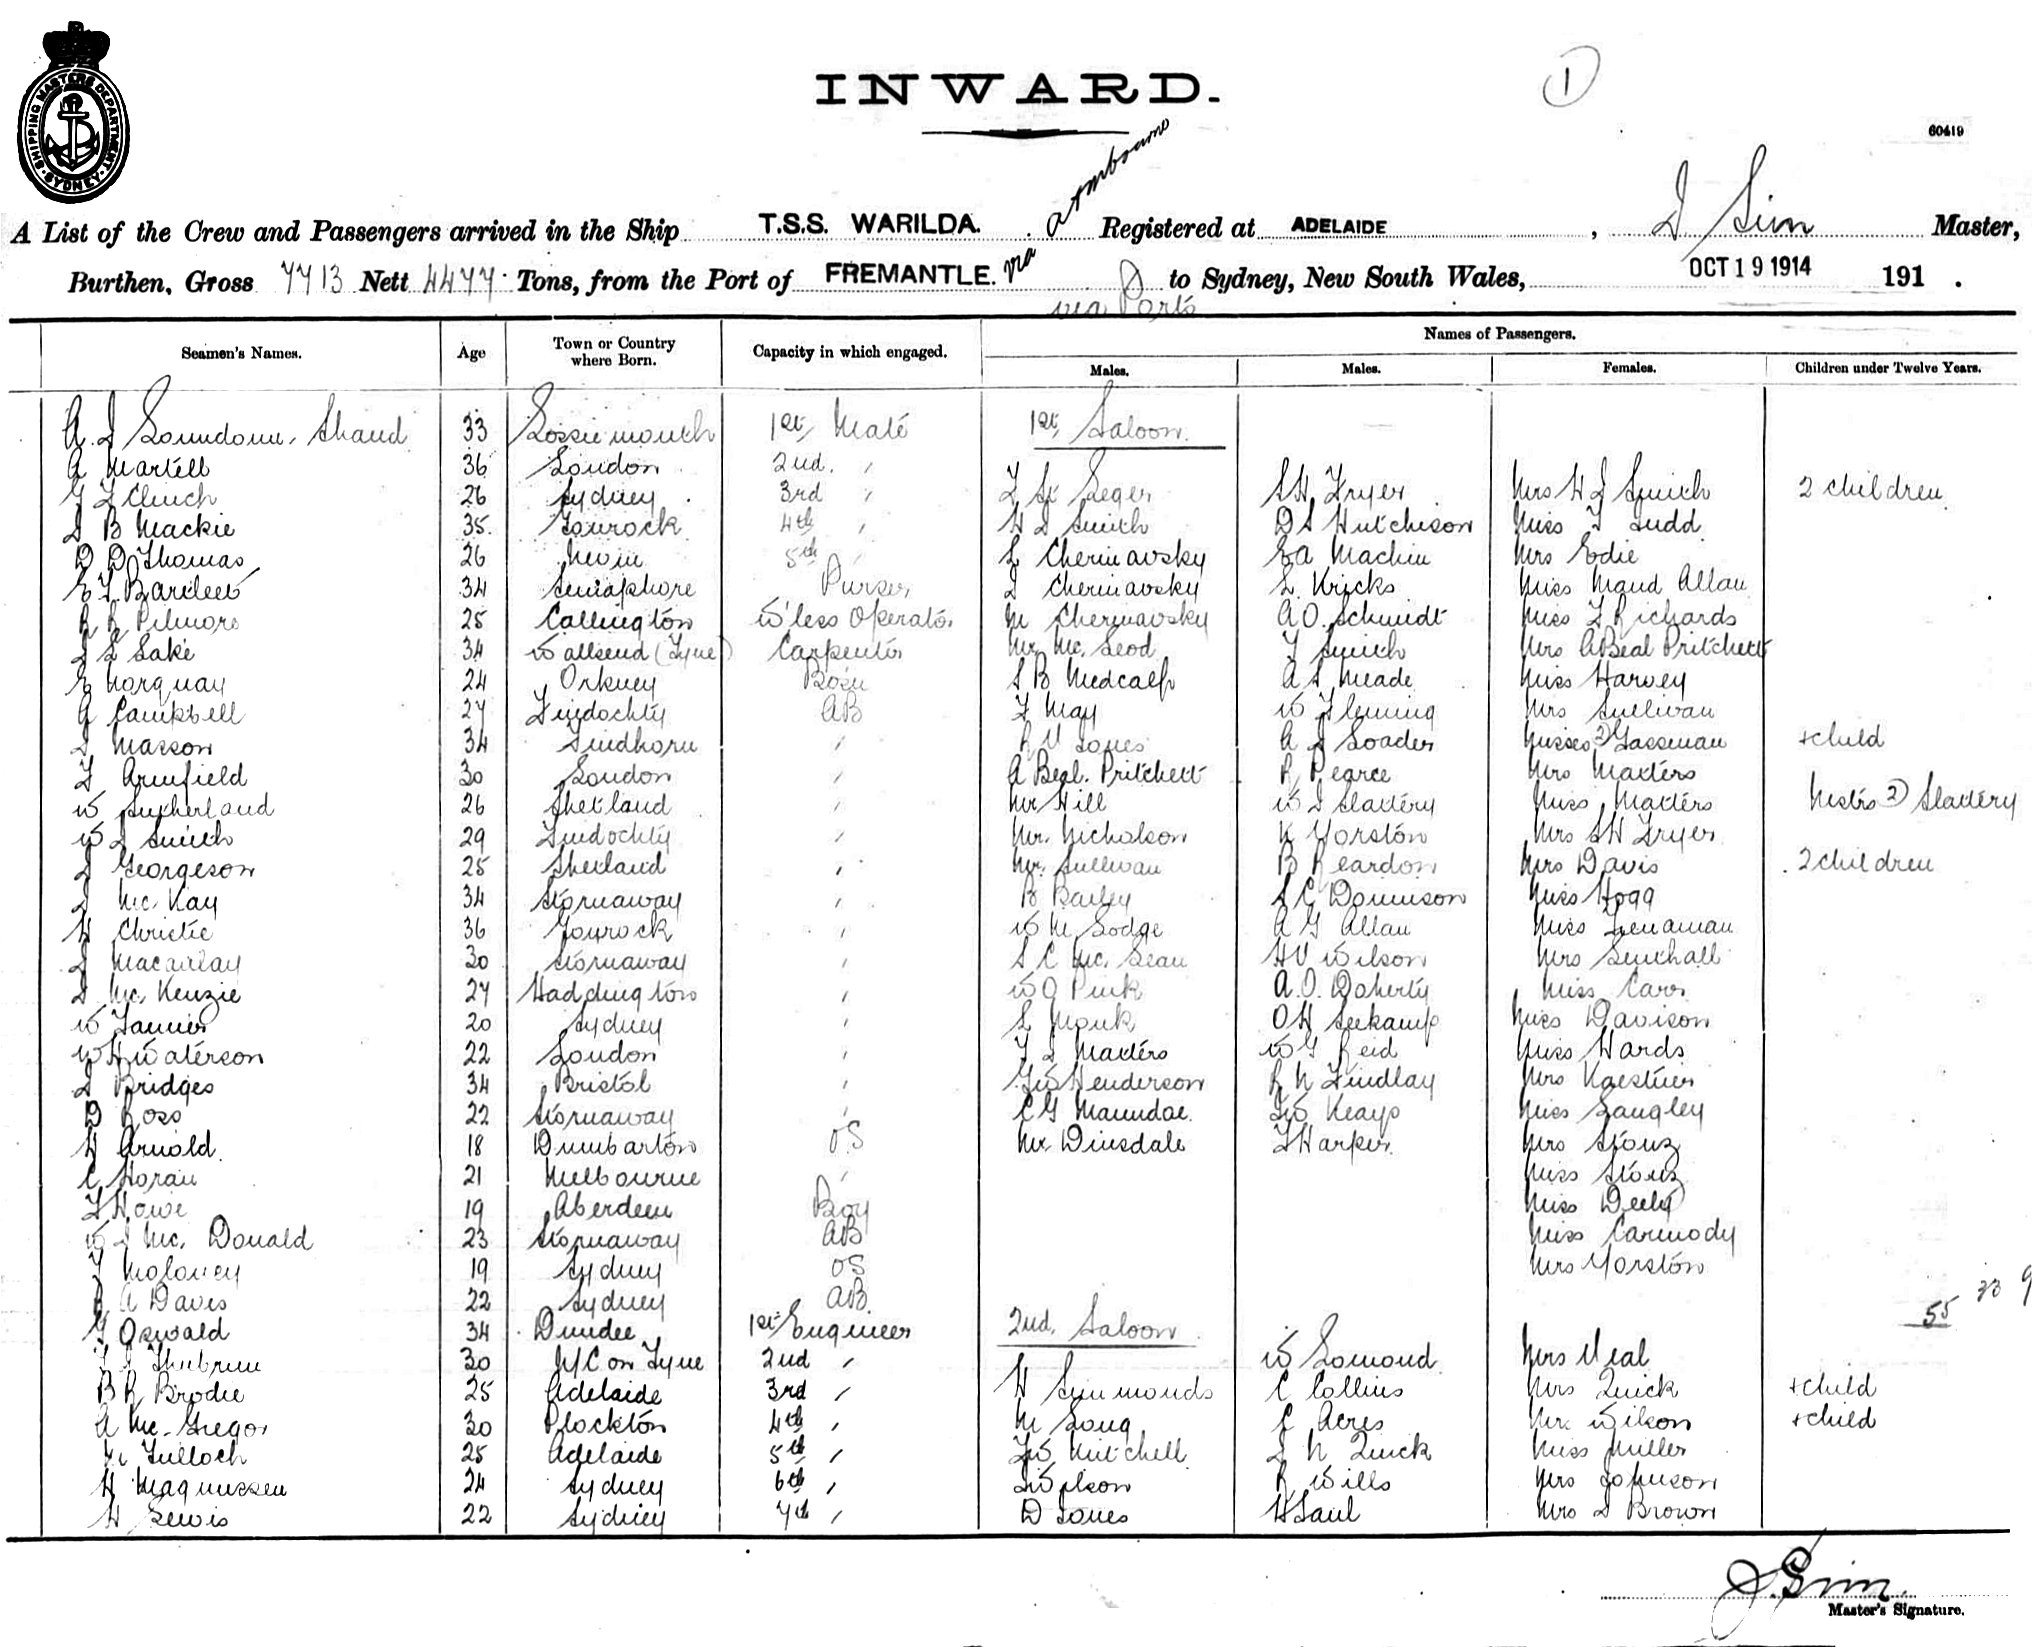 SHIPPING MASTERS DEPARTMENT
SYDNEY
INWARD.
1
60419
A List of the Crew and Passengers arrived in the Ship T.S.S. WARILDA. Registered at ADELAIDE, J Sim Master,
Burthen, Gross 7713 Nett 4477 Tons, from the Port of FREMANTLE. via to Sydney, New South Wales, OCT 19 1914 191 .
via Ports
Names of Passengers.
Seamen's Names. Age Town or Country where Born. Capacity in which engaged. Males. Males. Females. Children under Twelve Years.
Shand 33 Lossiemouth 1st Mate 1st Saloon
A Martell 36 London 2nd "
Clinch 26 Sydney 3rd " Seger SH Fryer Mrs H J Smith 2 children
J B Mackie 35 Gourock 4th " H J Smith D S Hutchison Miss Judd
D D Thomas 26 Nevin 5th " L Cherniavsky E A Machin Mrs Edie
Bartlett 34 Semaphore Purser J Cherniavsky L Kricks Miss Maud Allan
25 Callington W'less Operator M Cherniavsky A O. Schmidt Miss Richards
34 Wallsend (Tyne) Carpenter Mr Mc. Leod Smith Mrs A Beal Pritchett
Norquay 24 Orkney Bosn S B Medcalf A S Meade Miss Harvey
A Campbell 27 Findochty AB May W Fleming Mrs Sullivan
J Masson 34 Findhorn " R V Jones A J Loader Misses 2 Gassman + child
Armfield 30 London " A Beal. Pritchett R Pearce Mrs Matters
W Sutherland 26 Shetland " Mr Hill W J Slattery Miss Matters Mstrs 2 Slattery
W J Smith 29 Findochty " Mr. Nicholson K Yorston Mrs SH Fryer
J Georgeson 25 Shetland " Mr. Sullivan B Reardon Mrs Davis 2 children
J Mc Kay 34 Stornaway " B Bailey S C Dennison Miss Hogg
H Christie 36 Gourock " W M Lodge A G Allan Miss Lenaman
J Macaulay 30 Stornaway " S C Mc. Lean H V Wilson Mrs Southall
J Mc Kenzie 27 Haddington " W O Pink A. O. Doherty Miss Carr
W Tanner 20 Sydney " L Monk O H Seekamp Miss Davison
W H Waterson 22 London " J Matters W G Reid Miss Hards
J Bridges 34 Bristol " G W Henderson R N Findlay Mrs Kaestner
D Ross 22 Stornaway " C G Maundae J W Keays Miss Langley
H Arnold 18 Dumbarton OS Mr Dinsdale Harper Mrs Stonz
C Horan 21 Melbourne " Miss Stonz
Howe 19 Aberdeen Boy Miss Deely
W J Mc. Donald 23 Stornaway AB Miss Carmody
Moloney 19 Sydney OS Mrs Yorston
R A Davis 22 Sydney AB 33 9
G Oswald 34 Dundee 1st Engineer 2nd Saloon 55
30 N/C on Tyne 2nd " W Lomond Mrs Neal
B R Brodie 25 Adelaide 3rd " H Simmonds C Collins Mrs Quick + child
A Mc. Gregor 30 Plockton 4th " M Long Acres Mrs Wilson + child
Tulloch 25 Adelaide 5th " J W Mitchell J N Quick Miss Miller
H Magnussen 24 Sydney 6th " R Wills Mrs Johnson
H Lewis 22 Sydney 7th " D Jones H Saul Mrs J Brown
J. Sim
Master's Signature.